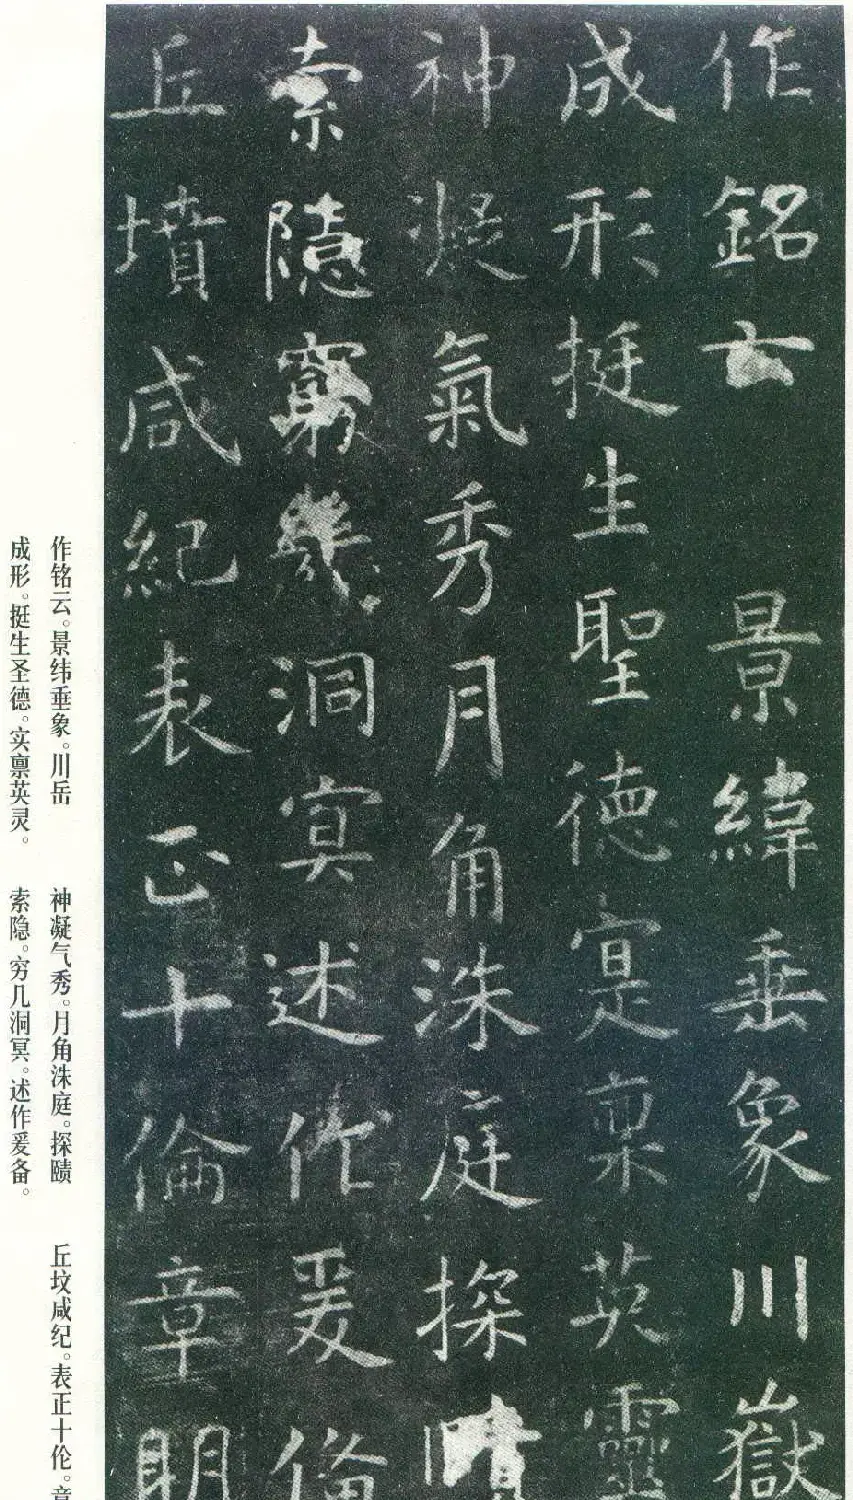 作銘云 景緯垂象川嶽
成形挺生聖德寔稟英靈
神凝氣秀月角洙庭探賾
索隱窮幾洞冥述作爰俻
丘墳咸紀表正十倫章明
作铭云。景纬垂象。川岳
成形。挺生圣德。实禀英灵。
神凝气秀。月角洙庭。探赜
索隐。穷几洞冥。述作爰备。
丘坟咸纪。表正十伦。